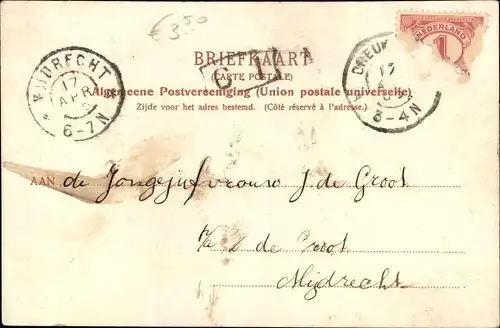 € 3.50
BRIEFKAART
(CARTE POSTALE)
Algemeene Postvereeniging (Union postale universelle)
Zijde voor het adres bestemd. (Côté réservé à l'adresse.)
MIJDRECHT
17
APR
6-7N
17
3-4N
NEDERLAND
1
AAN de Jongejufvrouw J. de Groot
de Groot
Mijdrecht